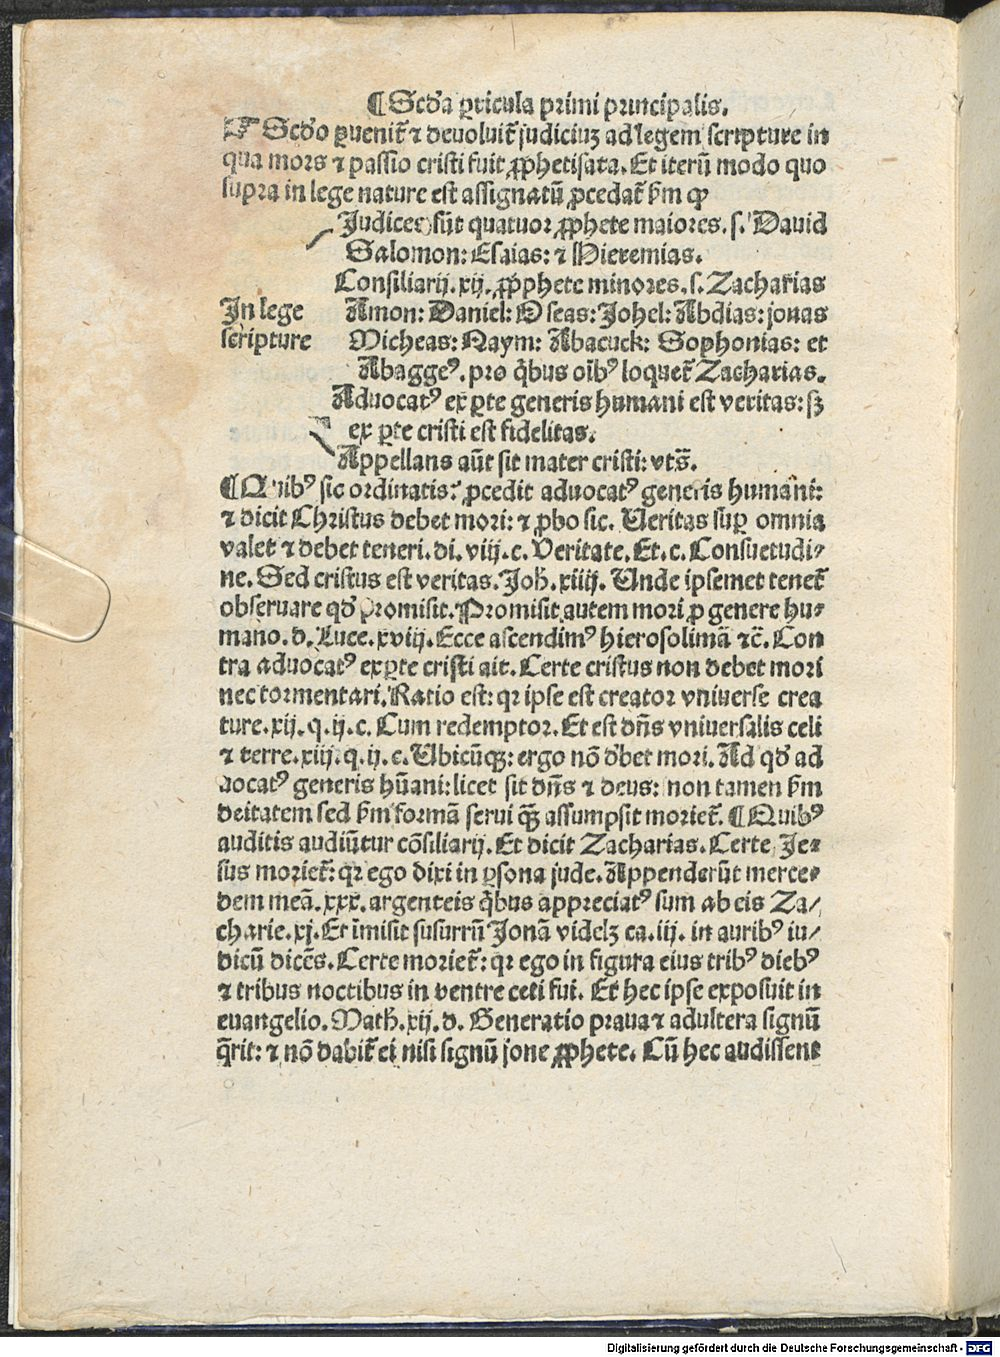 ¶ Scḋa ꝑticula primi principalis.
Scḋo ꝑuenit̄ ⁊ deuoluit̄ judiciuꝫ ad legem scripture in
qua mors ⁊ passio cristi fuit ꝓphetisata. Et iterū modo quo
supra in lege nature est assignatū ꝓcedat̄ ẜm ꝙ
Judices sūt quatuor ꝓphete maiores. s. Dauid
Salomon: Esaias: ⁊ Hieremias.
Consiliarij. xij. ꝓphete minores. s. Zacharias
In lege Amon: Daniel: Oseas: Johel: Abdias: jonas
scripture Micheas: Naym: Abacuck: Sophonias: et
Abaggeꝰ. pro q̄bus oībꝰ loquet̄ Zacharias.
Aduocatꝰ ex ꝑte generis humani est veritas: sꝫ
ex ꝑte cristi est fidelitas.
Appellans aūt sit mater cristi: vts̄.
¶ Quibꝰ sic ordinatis: ꝓcedit aduocatꝰ generis humani:
⁊ dicit Christus debet mori: ⁊ ꝓbo sic. Veritas suꝑ omnia
valet ⁊ debet teneri. di. viij. c. Veritate. Et. c. Consuetudi⸗
ne. Sed cristus est veritas. Joh̄. xiiij. Unde ipsemet tenet̄
obseruare qḋ promisit. Promisit autem mori ꝓ genere hu⸗
mano. d. Luce. xviij. Ecce ascendimꝰ hierosolimā ⁊c̄. Con
tra aduocatꝰ ex ꝑte cristi ait. Certe cristus non debet mori
nec tormentari. Ratio est: qr ipse est creator vniuerse crea
ture. xij. q. ij. c. Cum redemptor. Et est dn̄s vniuersalis celi
⁊ terre. xiij. q. ij. c. Ubicūqꝫ: ergo nō ḋbet mori. Ad qḋ ad
uocatꝰ generis hūani: licet sit dn̄s ⁊ deus: non tamen ẜm
deitatem sed ẜm formā serui quā assumpsit moriet̄. ¶ Quibꝰ
auditis audiūtur cōsiliarij. Et dicit Zacharias. Certe Je⸗
sus moriet̄: qr ego dixi in ꝑsona jude. Appenderūt merce⸗
dem meā. xxx. argenteis q̄bus appreciatꝰ sum ab eis Za⸗
charie. xj. Et īmisit susurrū Jonā videlꝫ ca. iij. in auribꝰ iu⸗
dicū dicēs. Certe moriet̄: qr ego in figura eius tribꝰ diebꝰ
⁊ tribus noctibus in ventre ceti fui. Et hec ipse exposuit in
euangelio. Math̄. xij. d. Generatio praua ⁊ adultera signū
q̄rit: ⁊ nō dabit̄ ei nisi signū jone ꝓphete. Cū hec audissent
Digitalisierung gefördert durch die Deutsche Forschungsgemeinschaft - DFG